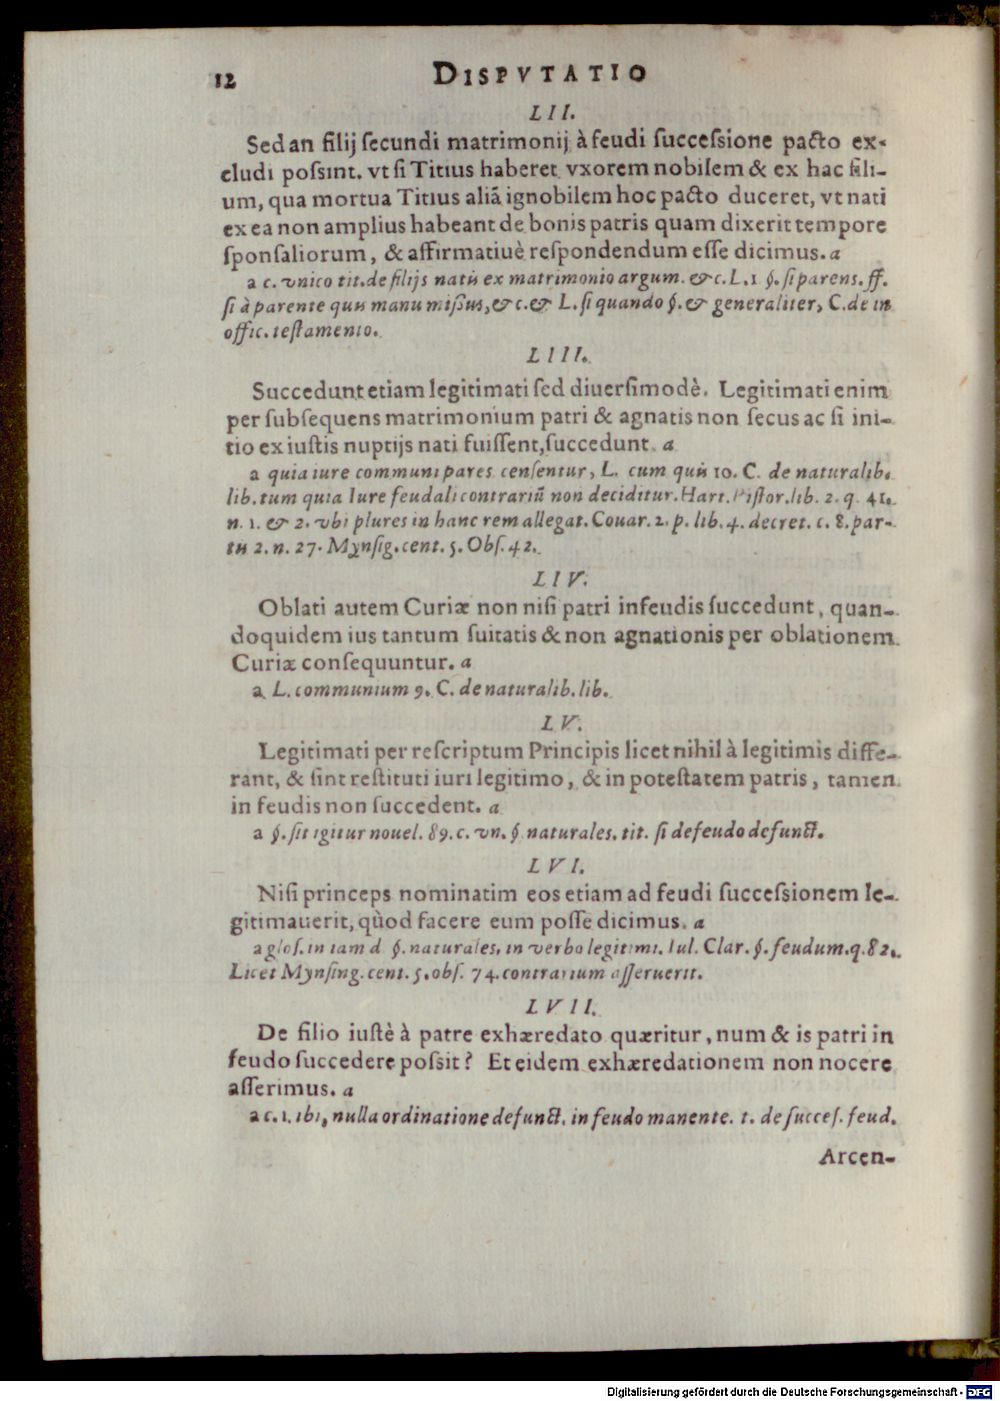 12 DISPVTATIO
LII.
Sed an filij ſecundi matrimonij à feudi ſucceſsione pacto ex-
cludi poſsint. vt ſi Titius haberet vxorem nobilem & ex hac fili-
um, qua mortua Titius aliā ignobilem hoc pacto duceret, vt nati
ex ea non amplius habeant de bonis patris quam dixerit tempore
ſponſaliorum, & affirmatiuè reſpondendum eſſe dicimus. a
a c. vnico tit. de filijs natis ex matrimonio argum. & c. L. 1 §. ſi parens. ff.
ſi à parente quis manu miſsus, & c. & L. ſi quando §. & generaliter, C. de in
offic. teſtamento.
LIII.
Succedunt etiam legitimati ſed diuerſimodè. Legitimati enim
per ſubſequens matrimonium patri & agnatis non ſecus ac ſi ini-
tio ex iuſtis nuptijs nati fuiſſent, ſuccedunt. a
a quia iure communi pares cenſentur, L. cum quis 10. C. de naturalib.
lib. tum quia Iure feudali contrariū non deciditur. Hart. Piſtor. lib. 2. q. 41.
n. 1. & 2. vbi plures in hanc rem allegat. Couar. 2. p. lib. 4. decret. c. 8. par-
tis 2. n. 27. Mynſig. cent. 5. Obſ. 42.
LIV.
Oblati autem Curiæ non niſi patri in feudis ſuccedunt, quan-
doquidem ius tantum ſuitatis & non agnationis per oblationem
Curiæ conſequuntur. a
a L. communium 9. C. de naturalib. lib.
LV.
Legitimati per reſcriptum Principis licet nihil à legitimis diffe-
rant, & ſint reſtituti iuri legitimo, & in poteſtatem patris, tamen
in feudis non ſuccedent. a
a §. ſit igitur nouel. 89. c. vn. §. naturales. tit. ſi de feudo defunct.
LVI.
Niſi princeps nominatim eos etiam ad feudi ſucceſsionem le-
gitimauerit, qùod facere eum poſſe dicimus. a
a gloſ. in iam d. §. naturales, in verbo legitimi. Iul. Clar. §. feudum. q. 82.
Licet Mynſing. cent. 5. obſ. 74. contrarium aſſeruerit.
LVII.
De filio iuſtè à patre exhæredato quæritur, num & is patri in
feudo ſuccedere poſsit? Et eidem exhæredationem non nocere
aſſerimus. a
a c. 1. ibi, nulla ordinatione defunct. in feudo manente. t. de ſucceſ. feud.
Arcen-
Digitalisierung gefördert durch die Deutsche Forschungsgemeinschaft - DFG